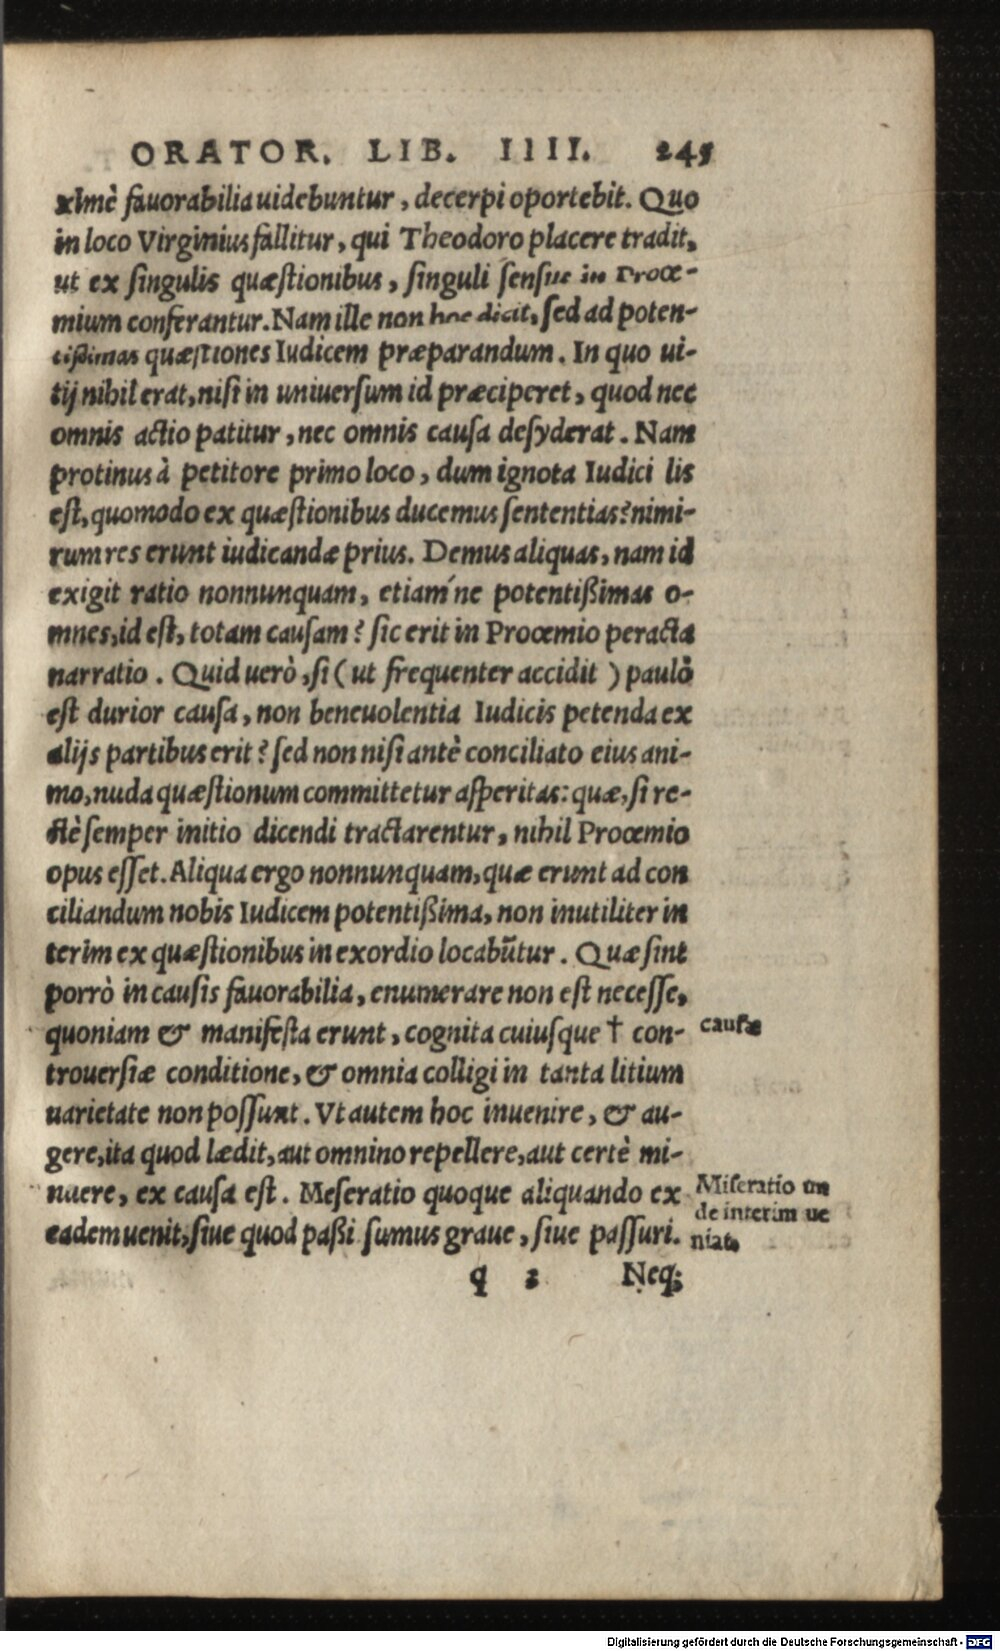 ORATOR. LIB. IIII. 245
ximè fauorabilia uidebuntur, decerpi oportebit. Quo
in loco Virginius fallitur, qui Theodoro placere tradit,
ut ex singulis quæstionibus, singuli sensus in Procœ-
mium conferantur. Nam ille non hoc dicit, sed ad poten-
tißimas quæstiones Iudicem præparandum. In quo ui-
tij nihil erat, nisi in uniuersum id præciperet, quod nec
omnis actio patitur, nec omnis causa desyderat. Nam
protinus à petitore primo loco, dum ignota Iudici lis
est, quomodo ex quæstionibus ducemus sententias? nimi-
rum res erunt iudicandæ prius. Demus aliquas, nam id
exigit ratio nonnunquam, etiam'ne potentißimas o-
mnes, id est, totam causam? sic erit in Prooemio peracta
narratio. Quid uerò, si (ut frequenter accidit) paulò
est durior causa, non beneuolentia Iudicis petenda ex
alijs partibus erit? sed non nisi antè conciliato eius ani-
mo, nuda quæstionum committetur asperitas: quæ, si re-
ctè semper initio dicendi tractarentur, nihil Prooemio
opus esset. Aliqua ergo nonnunquam, quæ erunt ad con
ciliandum nobis Iudicem potentißima, non inutiliter in
terim ex quæstionibus in exordio locabūtur. Quæ sint
porrò in causis fauorabilia, enumerare non est necesse,
quoniam & manifesta erunt, cognita cuiusque † con-
trouersiæ conditione, & omnia colligi in tanta litium
uarietate non possunt. Vt autem hoc inuenire, & au-
gere, ita quod lædit, aut omnino repellere, aut certè mi-
nuere, ex causa est. Meseratio quoque aliquando ex
eadem uenit, siue quod paßi sumus graue, siue passuri.
q 3 Neq;
causæ
Miseratio un
de interim ue
niat.
Digitalisierung gefördert durch die Deutsche Forschungsgemeinschaft - DFG